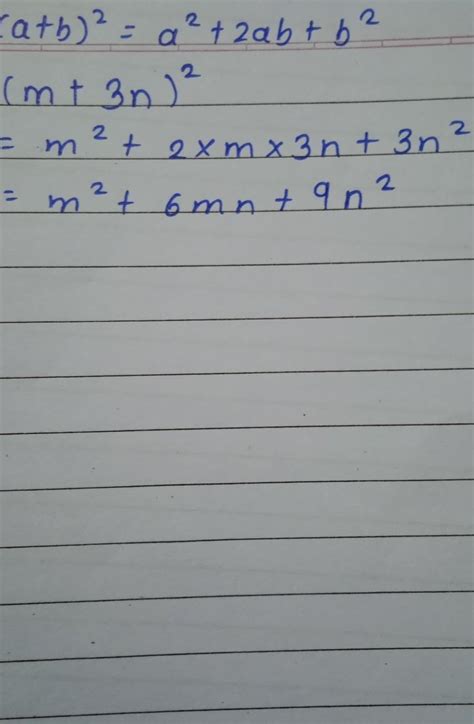 (a+b)² = a² + 2ab + b²
(m + 3n)²
= m² + 2×m×3n + 3n²
= m² + 6mn + 9n²